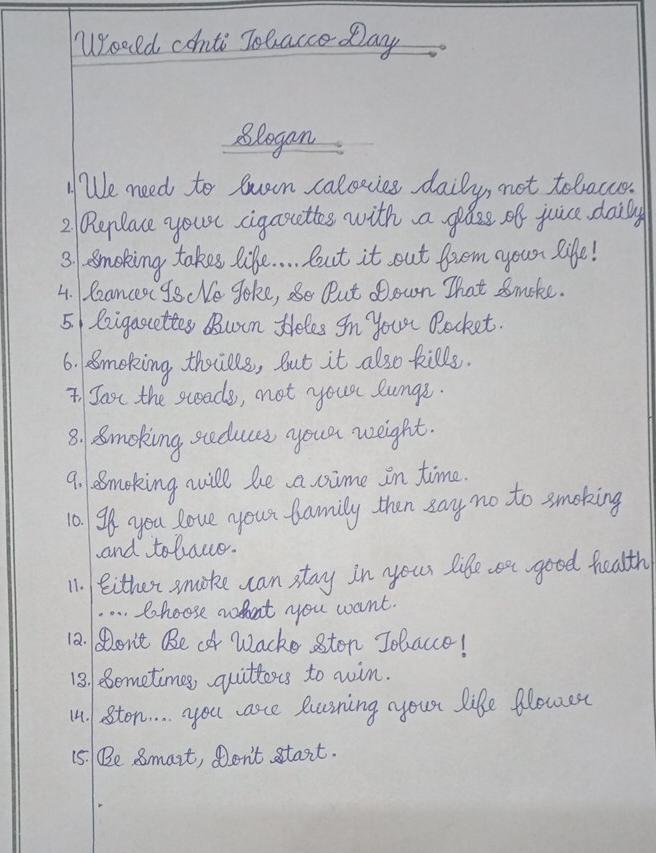 World Anti Tobacco Day
Slogan
1. We need to burn calories daily, not tobacco.
2. Replace your cigarettes with a glass of juice daily
3. Smoking takes life.... Cut it out from your life!
4. Cancer Is No Joke, So Put Down That Smoke.
5. Cigarettes Burn Holes In Your Pocket.
6. Smoking thrills, but it also kills.
7. Tar the roads, not your lungs.
8. Smoking reduces your weight.
9. Smoking will be a crime in time.
10. If you love your family then say no to smoking
and tobacco.
11. Either smoke can stay in your life or good health
.... Choose what you want.
12. Don't Be A Wacko Stop Tobacco!
13. Sometimes, quitters to win.
14. Stop.... you are burning your life flower
15. Be Smart, Don't Start.